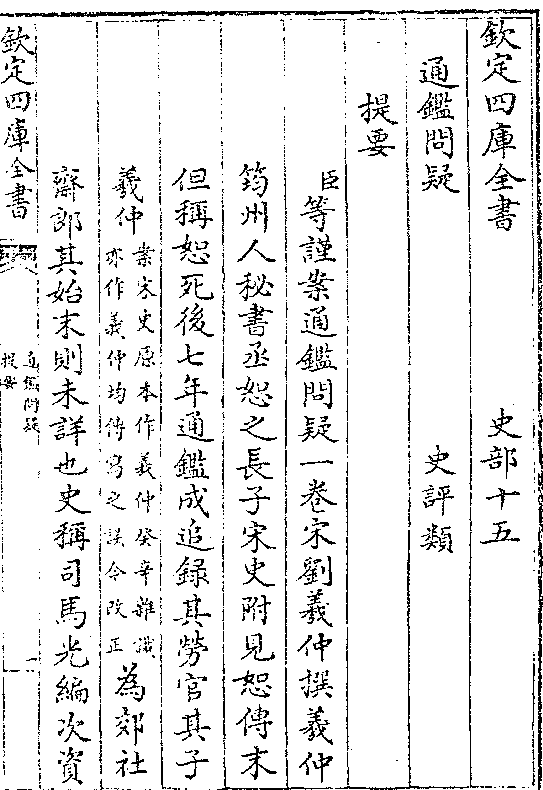 欽定四庫全書 史部十五
通鑑問疑 史評類
提要
臣等謹案通鑑問疑一卷宋劉羲仲撰羲仲
筠州人秘書丞恕之長子宋史附見恕傳末
但稱恕死後七年通鑑成追錄其勞官其子
羲仲案宋史原本作義仲癸辛雜識亦作義仲均傳寫之誤今改正為郊社
齋郎其始末則未詳也史稱司馬光編次資
欽定四庫全書
通鑑問疑
提要
一